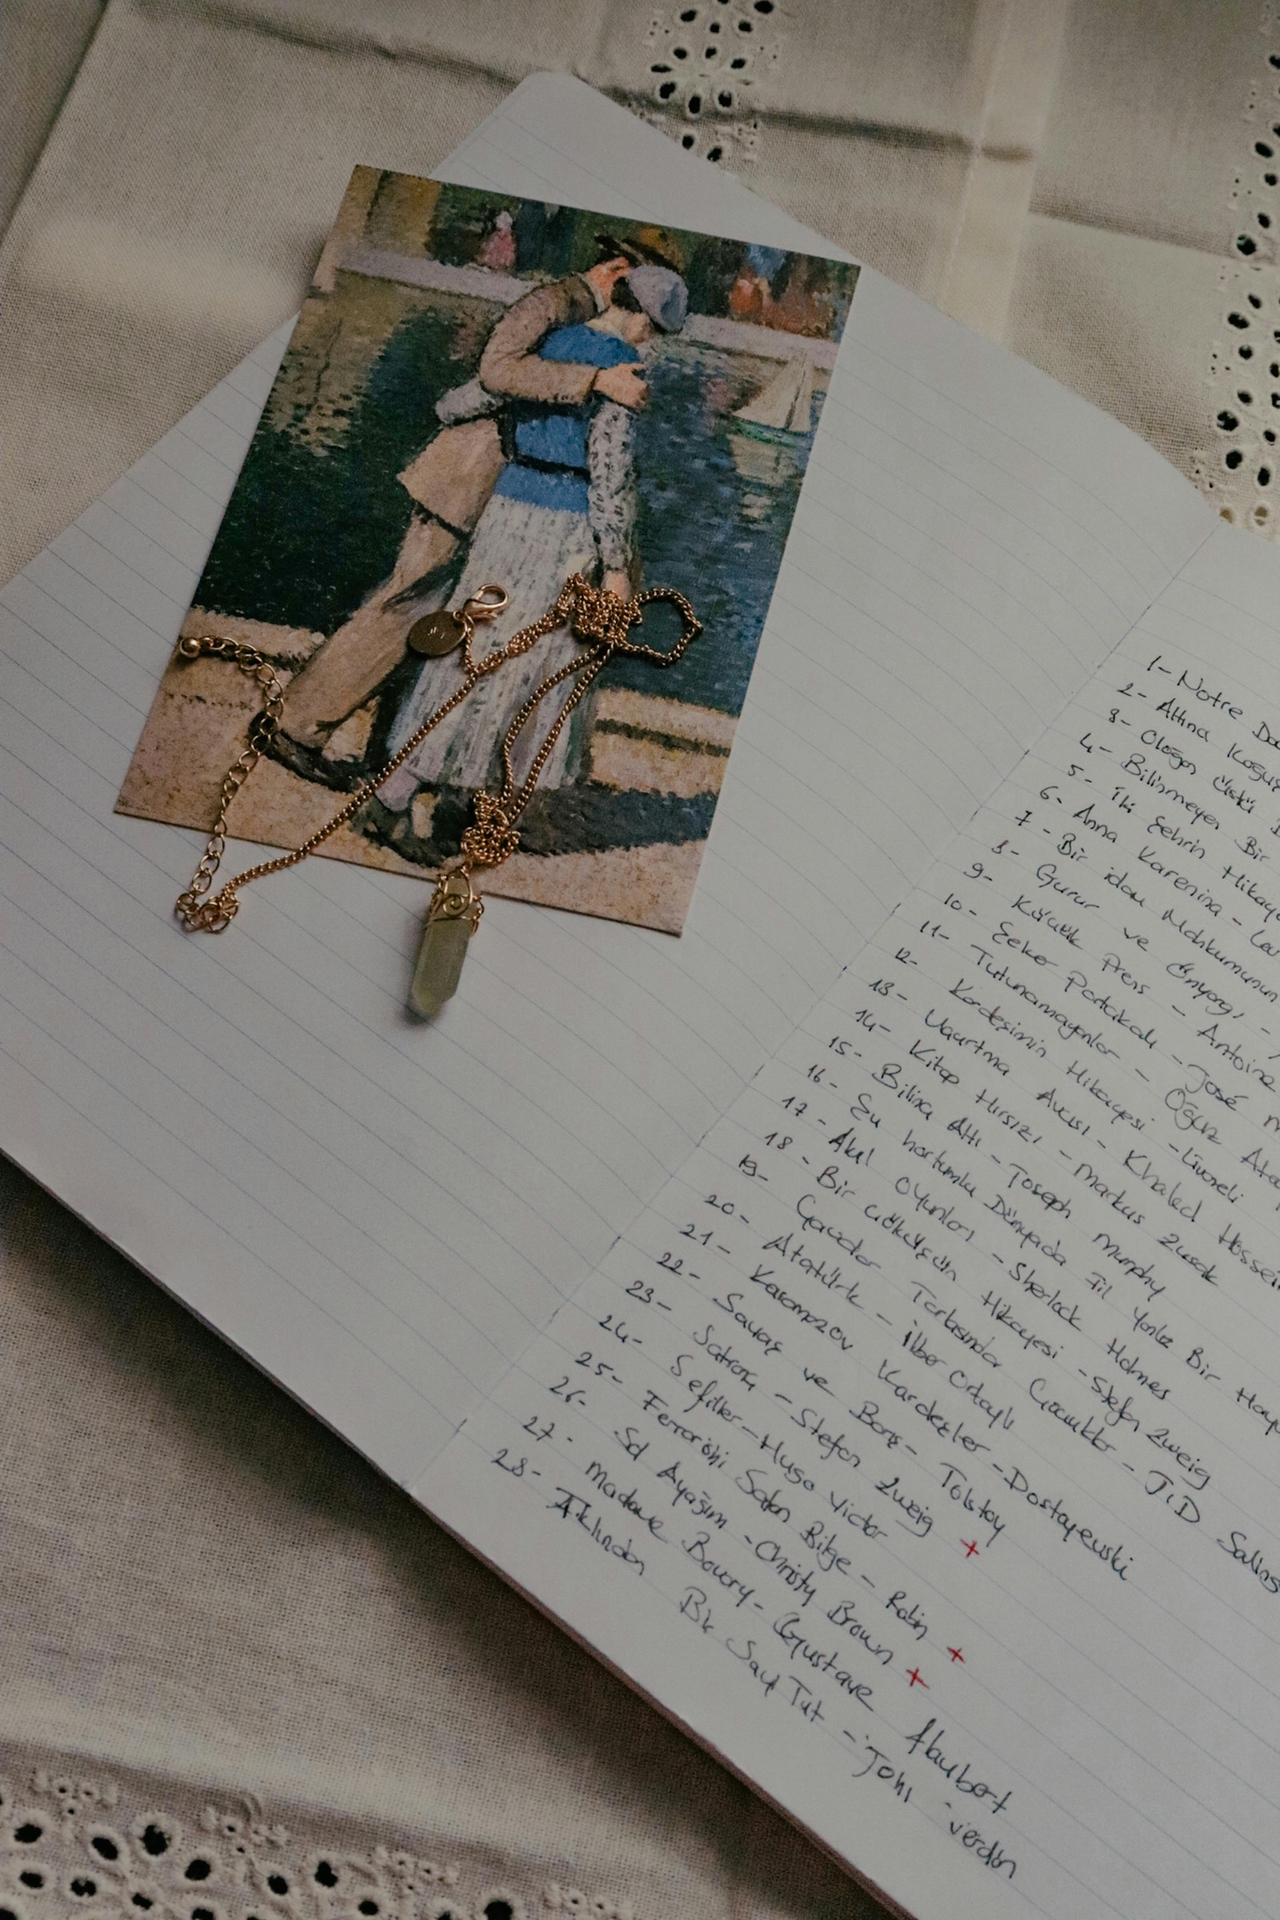 1- Notre Da
2- Altına Koğuş
3- Olağan üstü
4- Bilinmeyen Bir
5- İki Şehrin Hikaye
6- Anna Karenina - Lev
7- Bir idam Mahkumunun
8- Gurur ve Önyargı -
9- Küçük Prens - Antoine
10- Şeker Portakalı - José M
11- Tutunamayanlar - Oğuz Ata
12- Kardeşimin Hikayesi - Livaneli
13- Uçurtma Avcısı - Khaled Hossein
14- Kitap Hırsızı - Markus Zusak
15- Bilinç Altı - Joseph Murphy
16- Şu hortumlu Dünyada Fil Yalnız Bir Hay
17- Akıl Oyunları - Sherlock Holmes
18- Bir Çöküşün Hikayesi - Stefan Zweig
19- Çavdar Tarlasında Çocuklar - J.D Salin
20- Atatürk - İlber Ortaylı
21- Karamazov Kardeşler - Dostoyevski
22- Savaş ve Barış - Tolstoy
23- Satranç - Stefan Zweig +
24- Sefiller - Hugo Victor
25- Ferrarisini Satan Bilge - Robin +
26- Sol Ayağım - Christy Brown +
27- Madame Bovary - Gustave Flaubert
28- Aklından Bir Sayı Tut - John Verdon